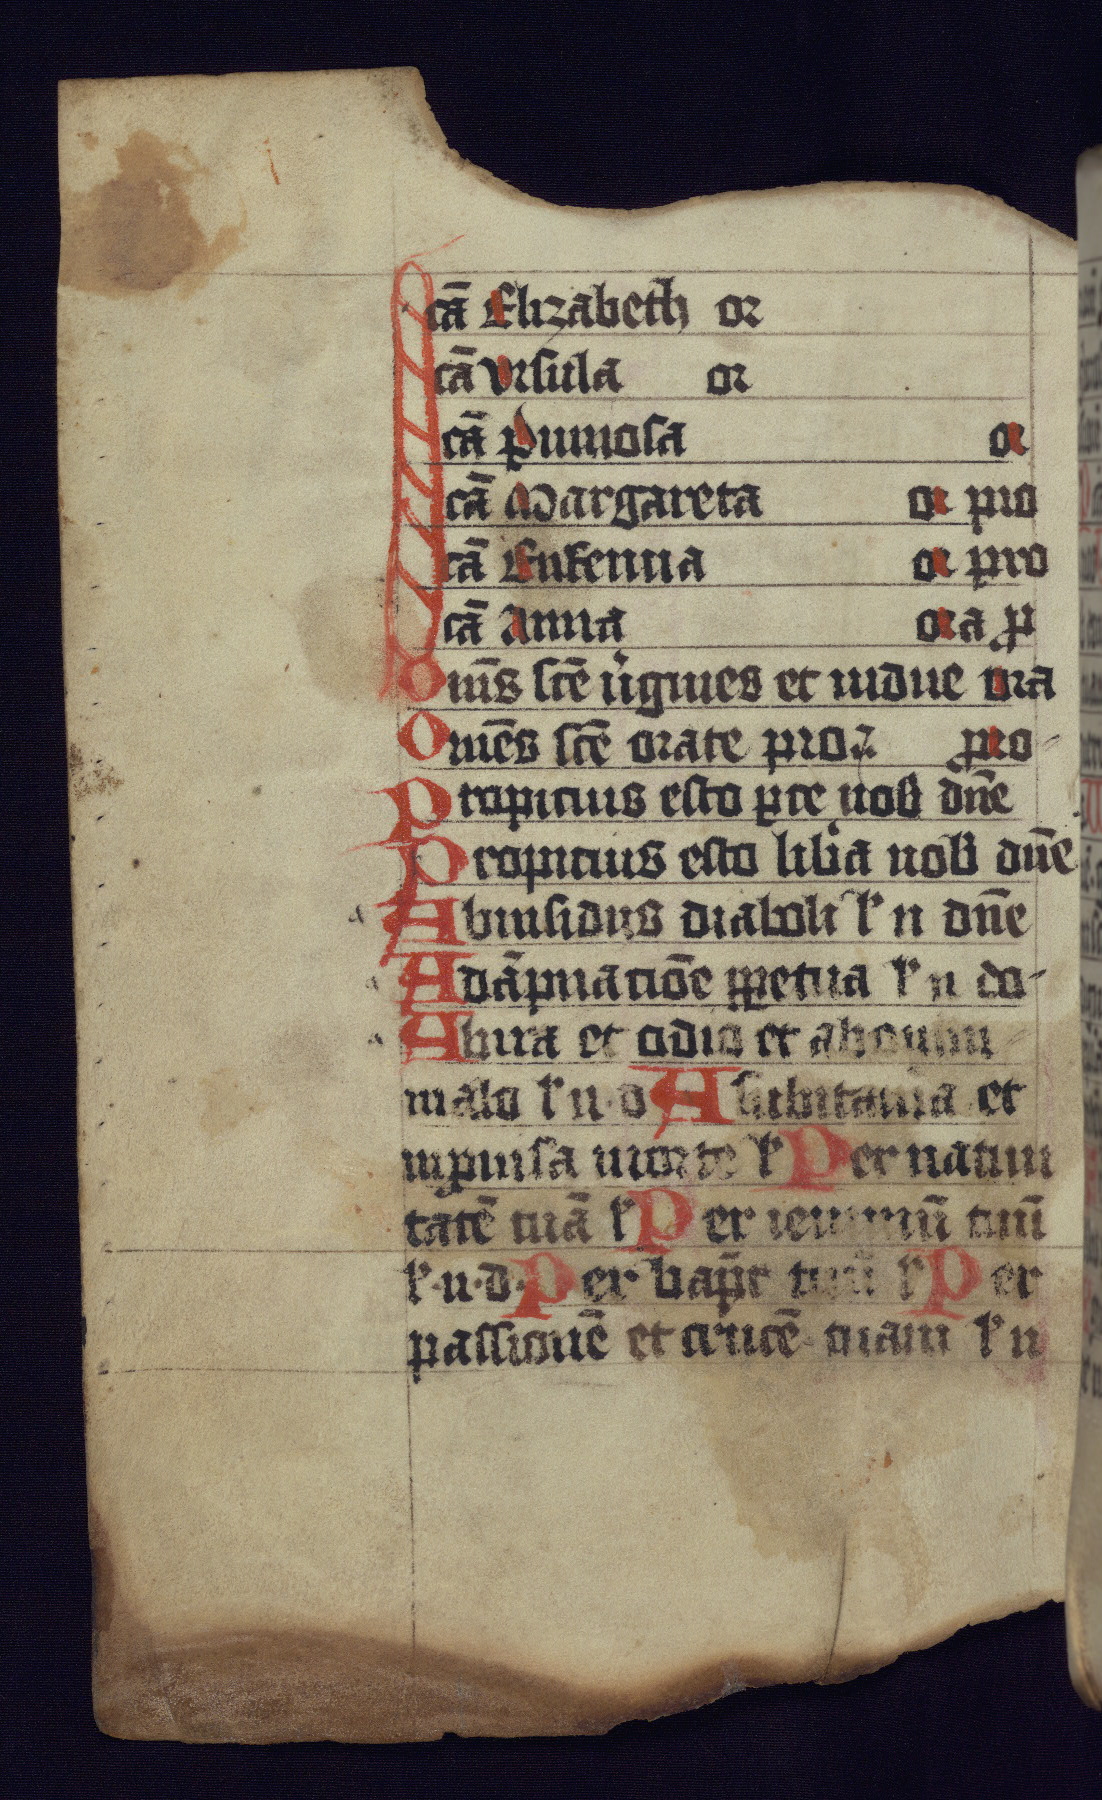 Scā Elizabeth or
Scā Vrsula or
Scā Pinnosa or
Scā Margareta or pro
Scā Eufemia or pro
Scā Anna ora ꝓ
Om̄s scē ugines et uidue ora
Omēs scē orate pro ꝓro
Propicius esto ꝑce nob dn̄e
Propicius esto liba nob dn̄e
Abinsidijs diaboli l n dn̄e
Adāpnacione ꝑpetua l n do
Abira et odio et ab omni
malo l n d A subitania et
inꝓuisa morte l Per natiui
tatē tuā l Per ieiuniū tuū
l n d Per bapt tuū l Per
passionē et crucē tuam l n